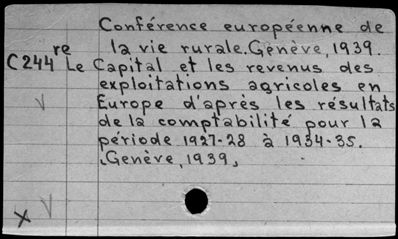 Conférence européenne de
la vie rurale. Genève, 1939.
C244re Le Capital et les revenus des
exploitations agricoles en
Europe d'après les résultats
de la comptabilité pour la
période 1927-28 à 1934-35.
Genève, 1939,